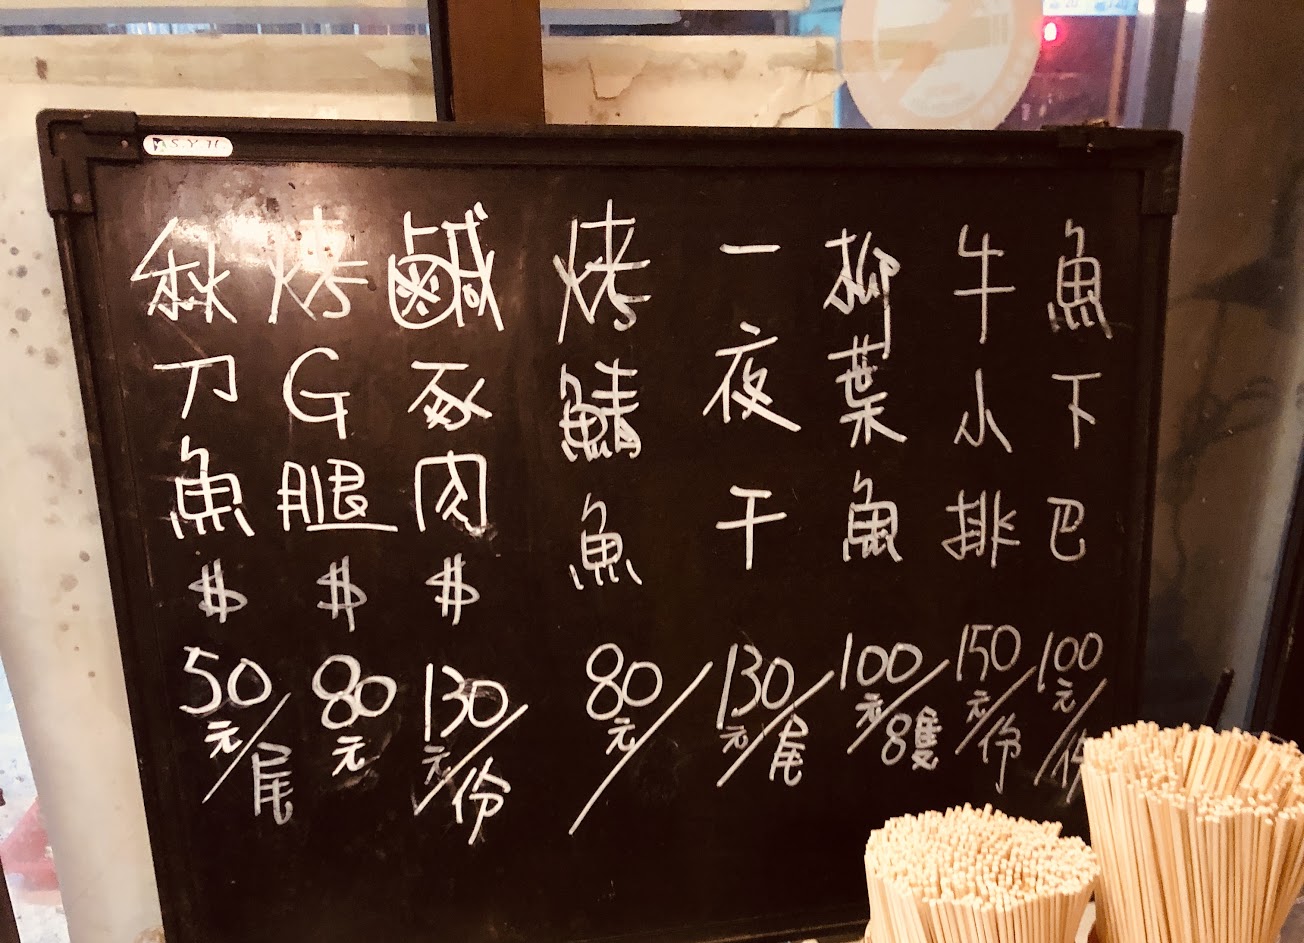 魚下巴100元/份
牛小排150元/份
柳葉魚100元/8隻
一夜干130元/尾
烤鯖魚80元/
鹹豕肉$130元/份
烤G腿$80元
秋刀魚$50元/尾